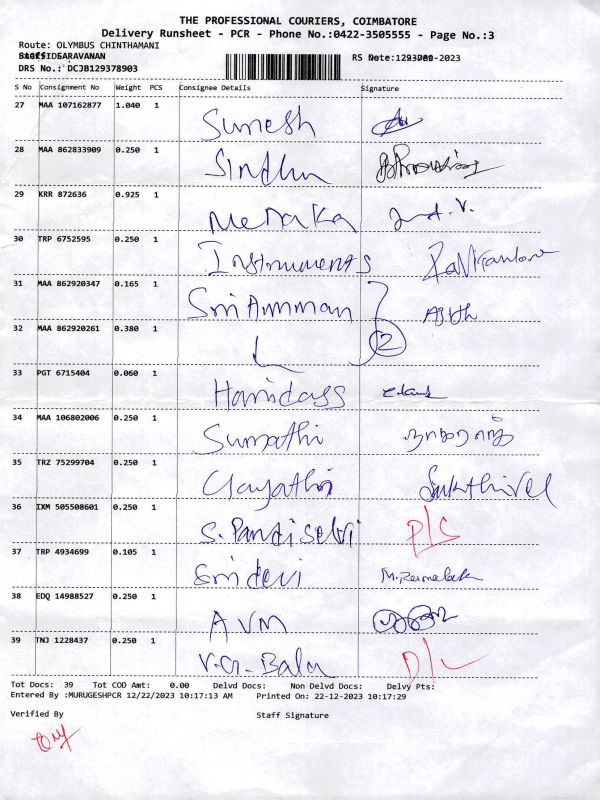 THE PROFESSIONAL COURIERS, COIMBATORE
Delivery Runsheet - PCR - Phone No.:0422-3505555 - Page No.:3
Route: OLYMBUS CHINTHAMANI
SARAVANAN RS Note: -2023
DRS No.: DCJB129378903
S No Consignment No Weight PCS Consignee Details Signature
27 MAA 107162877 1.040 1 Sumesh
28 MAA 862833909 0.250 1 Sindhu
29 KRR 872636 0.925 1 Menaka
30 TRP 6752595 0.250 1 Instruments
31 MAA 862920347 0.165 1 Sri Amman Ajith
32 MAA 862920261 0.380 1 2
33 PGT 6715404 0.060 1 Haridass
34 MAA 106802006 0.250 1 Sumathi
35 TRZ 75299704 0.250 1 Gayathri Sakthivel
36 IXM 505508601 0.250 1 S. Pandi Selvi
37 TRP 4934699 0.105 1 Sridevi
38 EDQ 14988527 0.250 1 AVM
39 TNJ 1228437 0.250 1 V.G. Balu D/L
Tot Docs: 39 Tot COD Amt: 0.00 Delvd Docs: Non Delvd Docs: Delvy Pts:
Entered By :MURUGESHPCR 12/22/2023 10:17:13 AM Printed On: 22-12-2023 10:17:29
Verified By Staff Signature